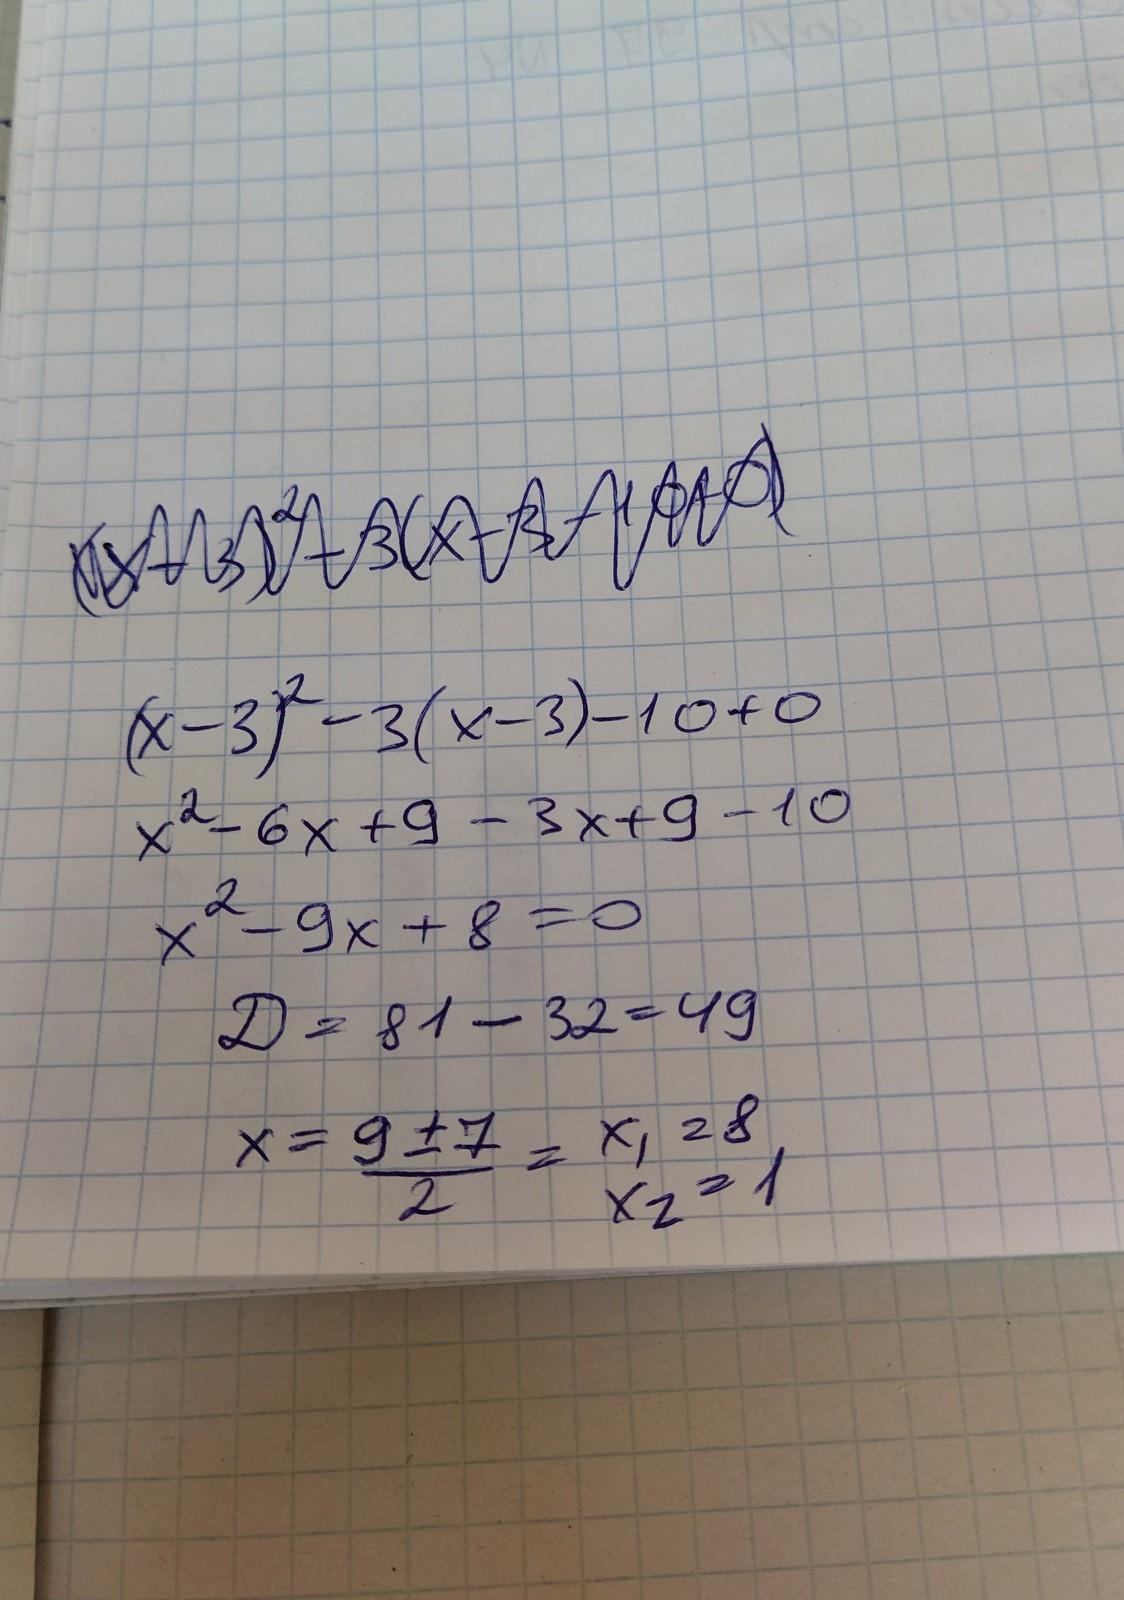 (x-3)²-3(x-3)-10+0
x²-6x+9-3x+9-10
x²-9x+8=0
D=81-32=49
x=9±7/2= x₁=8
x₂=1